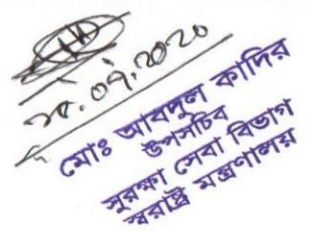 ২৮.০৭.২০২০
মোঃ আবদুল কাদির
উপসচিব
সুরক্ষা সেবা বিভাগ
স্বরাষ্ট্র মন্ত্রণালয়